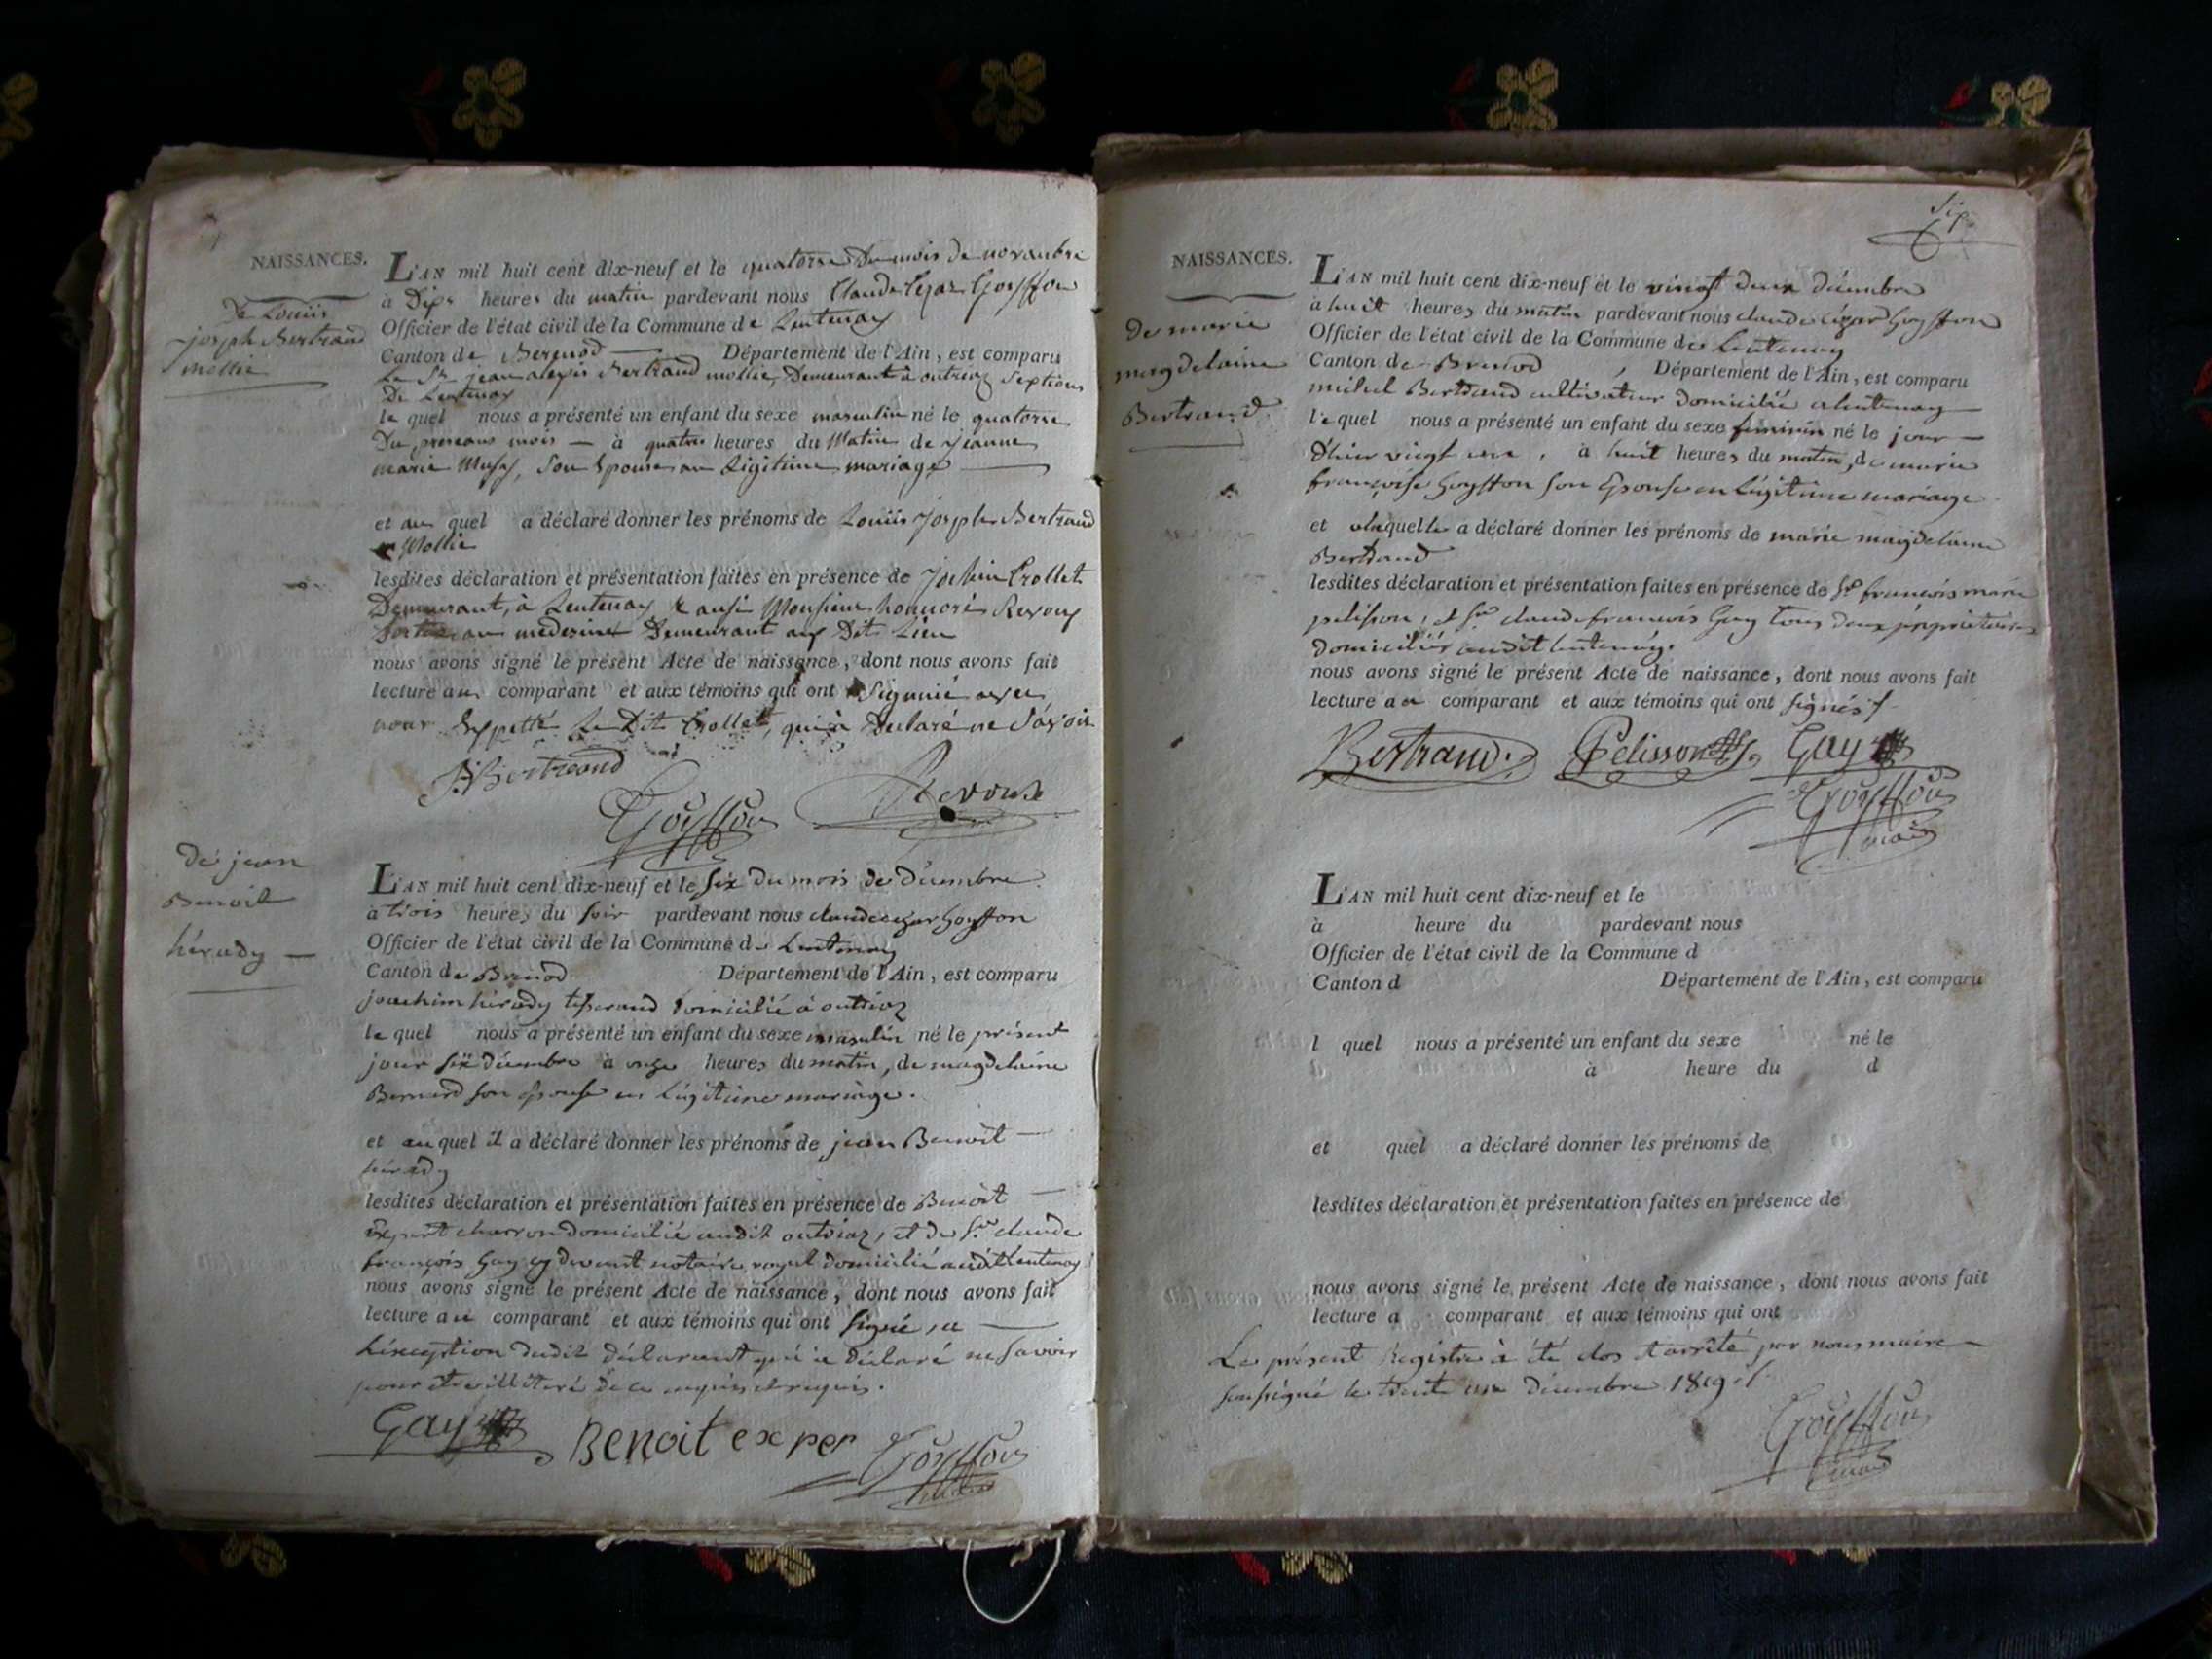 NAISSANCES.
De Louiis
joseph Bertrand
mollie
L'AN mil huit cent dix-neuf et le quatorse Du mois de novambre
à Dix heures du matin pardevant nous Claude Cezar Goyffon
Officier de l'état civil de la Commune de Lentenay
Canton de Brenod Département de l'Ain, est comparu
Le Sr. jean alexis Bertrand mollie, Demeurant à outriaz Septions
De Lentenay
le quel nous a présenté un enfant du sexe masculin né le quatorse
Du presans mois — à quatre heures du Matin de Jeanne
marie , Son Epouse an Ligitime mariage
et au quel a déclaré donner les prénoms de Louiis Joseph Bertrand
Mollie
lesdites déclaration et présentation faites en présence de Crollet
Demeurant, à Lentenay & ausi Monsieur honnoré Revoux
an medesine Demeurant au Dit Lieu
nous avons signé le présent Acte de naissance, dont nous avons fait
lecture au comparant et aux témoins qui ont Signnié avec
nous le Dit Crollet, qui à Declaré ne Savoir
Bertrand
Goyffon
Revoux
de jean
Benoit
hérady
L'AN mil huit cent dix-neuf et le six du mois de décembre
à trois heures du soir pardevant nous claude cezar Goyffon
Officier de l'état civil de la Commune de Lentenay
Canton de Brenod Département de l'Ain, est comparu
joachim hérady tisserand domicilié à outriaz
le quel nous a présenté un enfant du sexe masculin né le présent
jour six décembre à onze heures du matin, de magdelaine
Bernard son épouse en légitime mariage.
et au quel il a déclaré donner les prénoms de jean Benoit
hérady
lesdites déclaration et présentation faites en présence de Benoit
Expert charron domicilié audit outriaz, et de Sr. claude
françois Gay cy devant notaire royal domicilié audit Lentenay
nous avons signé le présent Acte de naissance, dont nous avons fait
lecture au comparant et aux témoins qui ont signé, a
l'éxception dudit déclarant qui a déclaré ne savoir
pour être illiteré de ce enquis et requis.
Gay
Benoit exper
Goyffon
maire
Six
NAISSANCES.
de marie
magdelaine
Bertrand
L'AN mil huit cent dix-neuf et le vingt deux décembre
à huit heures du matin pardevant nous claude cézar Goyffon
Officier de l'état civil de la Commune de Lentenay
Canton de Brenod, Département de l'Ain, est comparu
michel Bertrand cultivateur domicilié a lentenay
le quel nous a présenté un enfant du sexe féminin né le jour
d'hier vingt un, à huit heures du matin, de marie
françoise Goyffon son Epouse en légitime mariage
et a laquelle a déclaré donner les prénoms de marie magdelaine
Bertrand
lesdites déclaration et présentation faites en présence de Sr. françois marie
pelisson, et Sr. claude françois Gay tous deux propriétaires
domiciliés audit lentenay.
nous avons signé le présent Acte de naissance, dont nous avons fait
lecture au comparant et aux témoins qui ont signés
Bertrand. Pelisson Gay
Goyffon
maire
L'AN mil huit cent dix-neuf et le
à heure du pardevant nous
Officier de l'état civil de la Commune d
Canton d Département de l'Ain, est comparu
l quel nous a présenté un enfant du sexe né le
à heure du d
et quel a déclaré donner les prénoms de
lesdites déclaration et présentation faites en présence de
nous avons signé le présent Acte de naissance, dont nous avons fait
lecture a comparant et aux témoins qui ont
Le présent Registre à été clos et arrêté par nous maire
soussigné le trente un décembre 1819
Goyffon
maire